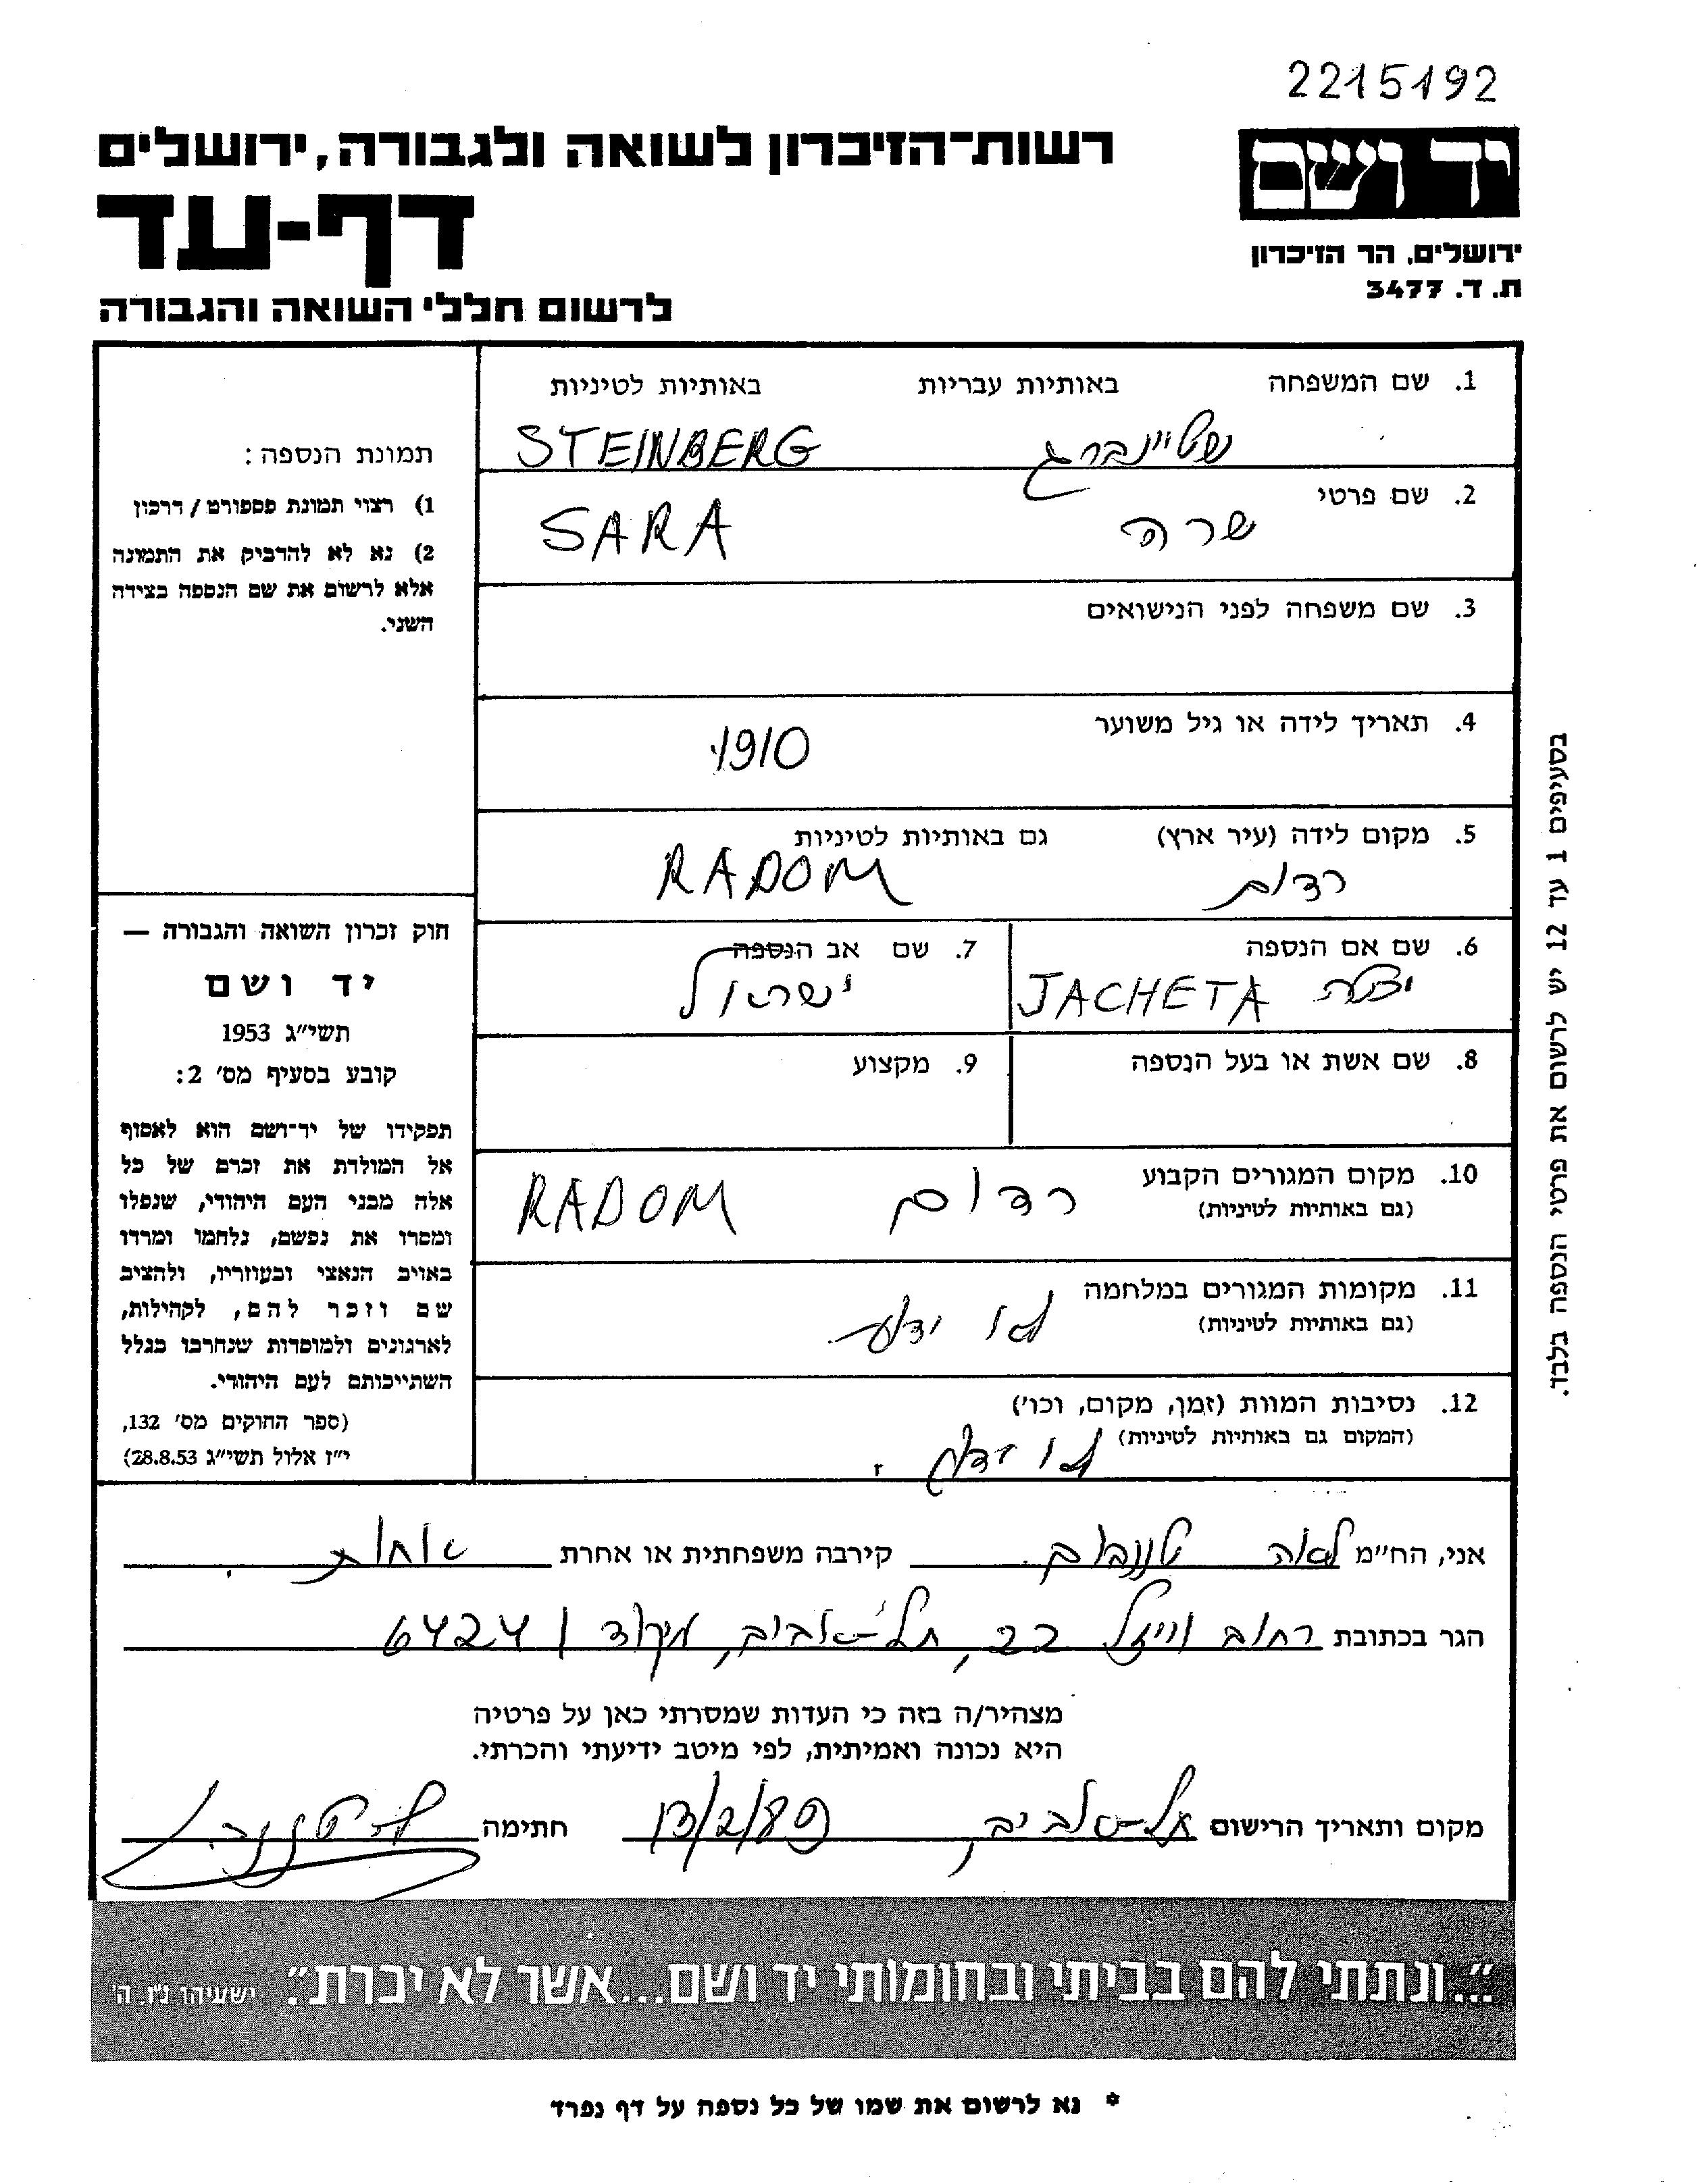 2215192
יד ושם
רשות-הזיכרון לשואה ולגבורה, ירושלים
דף-עד
ירושלים, הר הזיכרון
ת. ד. 3477
לרשום חללי השואה והגבורה
1. שם המשפחה באותיות עבריות באותיות לטיניות
שטיינברג STEINBERG
2. שם פרטי
שרה SARA
3. שם משפחה לפני הנישואים
4. תאריך לידה או גיל משוער
1910
5. מקום לידה (עיר ארץ) גם באותיות לטיניות
רדום RADOM
6. שם אם הנספה 7. שם אב הנספה
JACHETA ישראל
8. שם אשת או בעל הנספה 9. מקצוע
10. מקום המגורים הקבוע
(גם באותיות לטיניות)
רדום RADOM
11. מקומות המגורים במלחמה
(גם באותיות לטיניות)
לא ידוע
12. נסיבות המוות (זמן, מקום, וכו')
(המקום גם באותיות לטיניות)
לא ידוע
תמונת הנספה:
1) רצוי תמונת פספורט / דרכון
2) נא לא להדביק את התמונה
אלא לרשום את שם הנספה בצידה
השני.
חוק זכרון השואה והגבורה —
יד ושם
תשי"ג 1953
קובע בסעיף מס' 2:
תפקידו של יד-ושם הוא לאסוף
אל המולדת את זכרם של כל
אלה מבני העם היהודי, שנפלו
ומסרו את נפשם, נלחמו ומרדו
באויב הנאצי ובעוזריו, ולהציב
שם וזכר להם, לקהילות,
לארגונים ולמוסדות שנחרבו בגלל
השתייכותם לעם היהודי.
(ספר החוקים מס' 132,
י"ז אלול תשי"ג 28.8.53)
בסעיפים 1 עד 12 יש לרשום את פרטי הנספה בלבד.
אני, הח"מ לאה קירבה משפחתית או אחרת אחות
הגר בכתובת רחוב וייזל 22, תל-אביב, מיקוד 64241
מצהיר/ה בזה כי העדות שמסרתי כאן על פרטיה
היא נכונה ואמיתית, לפי מיטב ידיעתי והכרתי.
מקום ותאריך הרישום תל-אביב, 13/2/89 חתימה
"...ונתתי להם בביתי ובחומותי יד ושם...אשר לא יכרת". ישעיהו נ"ו, ה'
* נא לרשום את שמו של כל נספה על דף נפרד